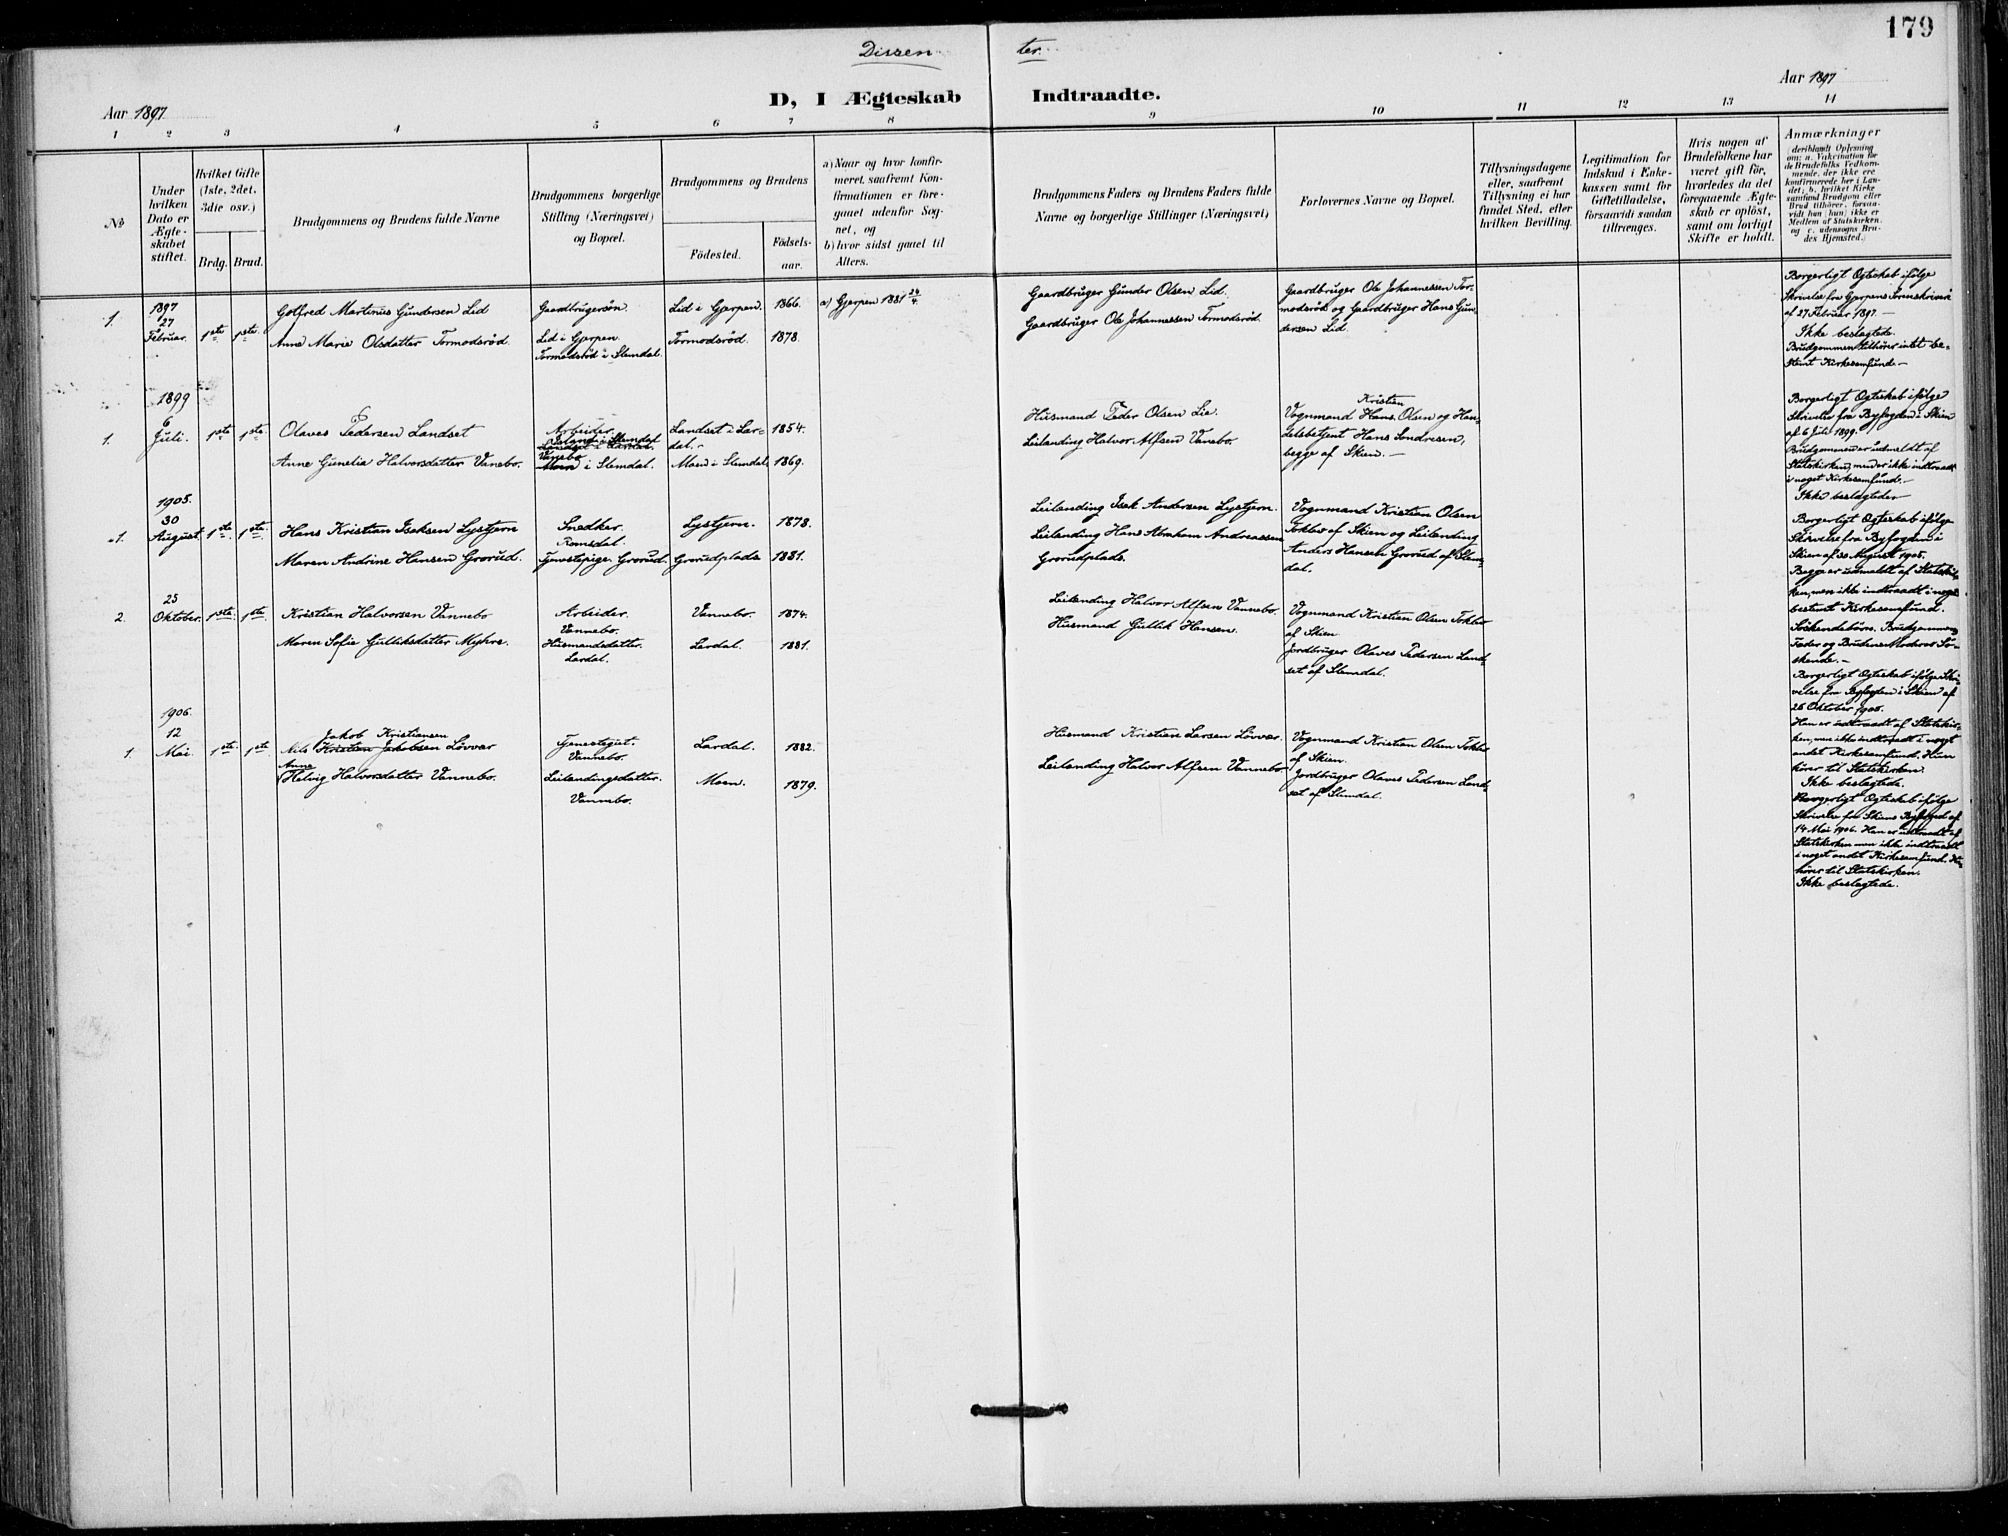 179
Dissen ter.
Aar 1897
D, I Ægteskab Indtraadte.
Aar 1897
1 2 3 4 5 6 7 8 9 10 11 12 13 14
No
Under
hvilken
Dato er
Ægte-
skabet
stiftet.
Hvilket Gifte
(1ste, 2det,
3die osv.)
Brdg. Brud.
Brudgommens og Brudens fulde Navne
Brudgommens borgerlige
Stilling (Næringsvei)
og Bopæl.
Brudgommens og Brudens
Födested.
Födsels-
aar.
a) Naar og hvor konfir-
meret, saafremt Kon-
firmationen er fore-
gaaet udenfor Sog-
net, og
b) hvor sidst gaaet til
Alters.
Brudgommens Faders og Brudens Faders fulde
Navne og borgerlige Stillinger (Næringsvei)
Forlovernes Navne og Bopæl.
Tillysningsdagene
eller, saafremt
Tillysning ei har
fundet Sted, efter
hvilken Bevilling.
Legitimation for
Indskud i Enke-
kassen samt for
Giftetilladelse,
forsaavidt saadan
tiltrænges.
Hvis nogen af
Brudefolkene har
været gift för,
hvorledes da det
foregaaende Ægte-
skab er oplöst,
samt om lovligt
Skifte er holdt.
Anmærkninger
(deriblandt Oplysning
om: a. Vakcination for
de Brudefolks Vedkom-
mende, der ikke ere
konfirmerede her i Lan-
det; b. hvilket Kirke
samfund Brudgom eller
Brud tilhörer, forsaa-
vidt han (hun) ikke er
Medlem af Statskirken,
og c. udensogns Bru-
des Hjemsted.)
1897
1. 27 Februar. 1ste 1ste
Gotfred Martinus Gundersen Lid
Gaardbrugersön.
Lid i Gjerpen. 1866.
a) Gjerpen 1881 24/4.
Anne Marie Olsdatter Tormodsröd
Lid i Gjerpen.
Tormodsröd i Slemdal.
Tormodsröd. 1878.
Gaardbruger Gunder Olsen Lid.
Gaardbruger Ole Johannessen Tormodsröd.
Gaardbruger Ole Johannessen Tor-
modsröd og Gaardbruger Hans Gun-
dersen Lid.
Borgerligt Ægteskab ifölge
Skrivelse fra Gjerpens Sorenskriveri
af 27 Februar 1897. —
Ikke beslagtede.
Brudgommen tilhörer intet be-
stemt Kirkesamfund. —
1899
1. 6 Juli. 1ste 1ste
Olaves Pedersen Landset
Arbeider.
Landset i Lar-
dal. 1854.
Anne Gunelia Halvorsdatter Vanebo.
Vanebo
Moen i Slemdal.
Moen i Slemdal. 1869.
Husmand Peder Olsen Lie.
Leilænding Halvor Alfsen Vanebo.
Kristian
Vognmand Hans Olsen og Han-
delsbetjent Hans Sondresen,
begge af Skien. —
Borgerligt Ægteskab ifölge
Skrivelse fra Byfogden i Skien
af 6 Juli 1899.
Brudgommen er udmeldt af
Statskirken, men er ikke indtraadt
i noget Kirkesamfund. —
Ikke beslagtede —
1905.
1. 30 August 1ste 1ste
Hans Kristian Isaksen Lystjern
Snedker.
Romsdal.
Lystjern. 1878.
Maren Andrine Hansen Grorud.
Tjenestepige. Grorud.
Grorudplads 1881.
Leilænding Isak Andersen Lystjern.
Leilænding Hans Abraham Andreassen
Grorudplads.
Vognmand Kristian Olsen
Tokbo af Skien og Leilænding
Anders Hansen Grorud af Slem-
dal.
Borgerligt Ægteskab ifölge
Skrivelse fra Byfogden i
Skien af 30 August 1905.
Begge er udmeldt af Statskir-
ken, men ikke indtraadt i noget
bestemt Kirkesamfund.
2. 25 Oktober. 1ste 1ste
Kristian Halvorsen Vannebo
Arbeider.
Vannebo.
Vannebo. 1874.
Maren Sofie Gulliksdatter Myhre.
Husmandsdatter.
Lardal.
Lardal. 1881.
Leilænding Halvor Alfsen Vannebo.
Husmand Gullik Hansen.
Vognmand Kristian Olsen Tokbo
af Skien
Jordbruger Olaves Pedersen Land-
set af Slemdal.
Söskendebörn. Brudgommens
Fader og Brudens Moder er Sö-
skende. —
Borgerligt Ægteskab ifölge Skri-
velse fra Byfogden i Skien af
25 Oktober 1905.
Han er udtraadt af Statskir-
ken, men ikke indtraadt i noget
andet Kirkesamfund. Hun
hörer til Statskirken.
Ikke beslagtede.
1906.
1. 12 Mai. 1ste 1ste
Jakob Kristiansen
Nils Kristian Jakobsen Lövvar
Tjenestegut.
Vannebo.
Lardal. 1882.
Anne
Helvig Halvorsdatter Vannebo.
Leilændingsdatter.
Vannebo.
Moen. 1879.
Husmand Kristian Larsen Lövvar.
Leilænding Halvor Alfsen Vannebo
Vognmand Kristian Olsen Tokbo
af Skien.
Jordbruger Olaves Pedersen Land-
set af Slemdal.
Borgerligt Ægteskab ifölge
Skrivelse fra Skiens Byfoged af
14 Mai 1906. Han er udtraadt af
Statskirken men ikke indtraadt
i noget andet Kirkesamfund. Hun
hörer til Statskirken.
Ikke beslagtede.